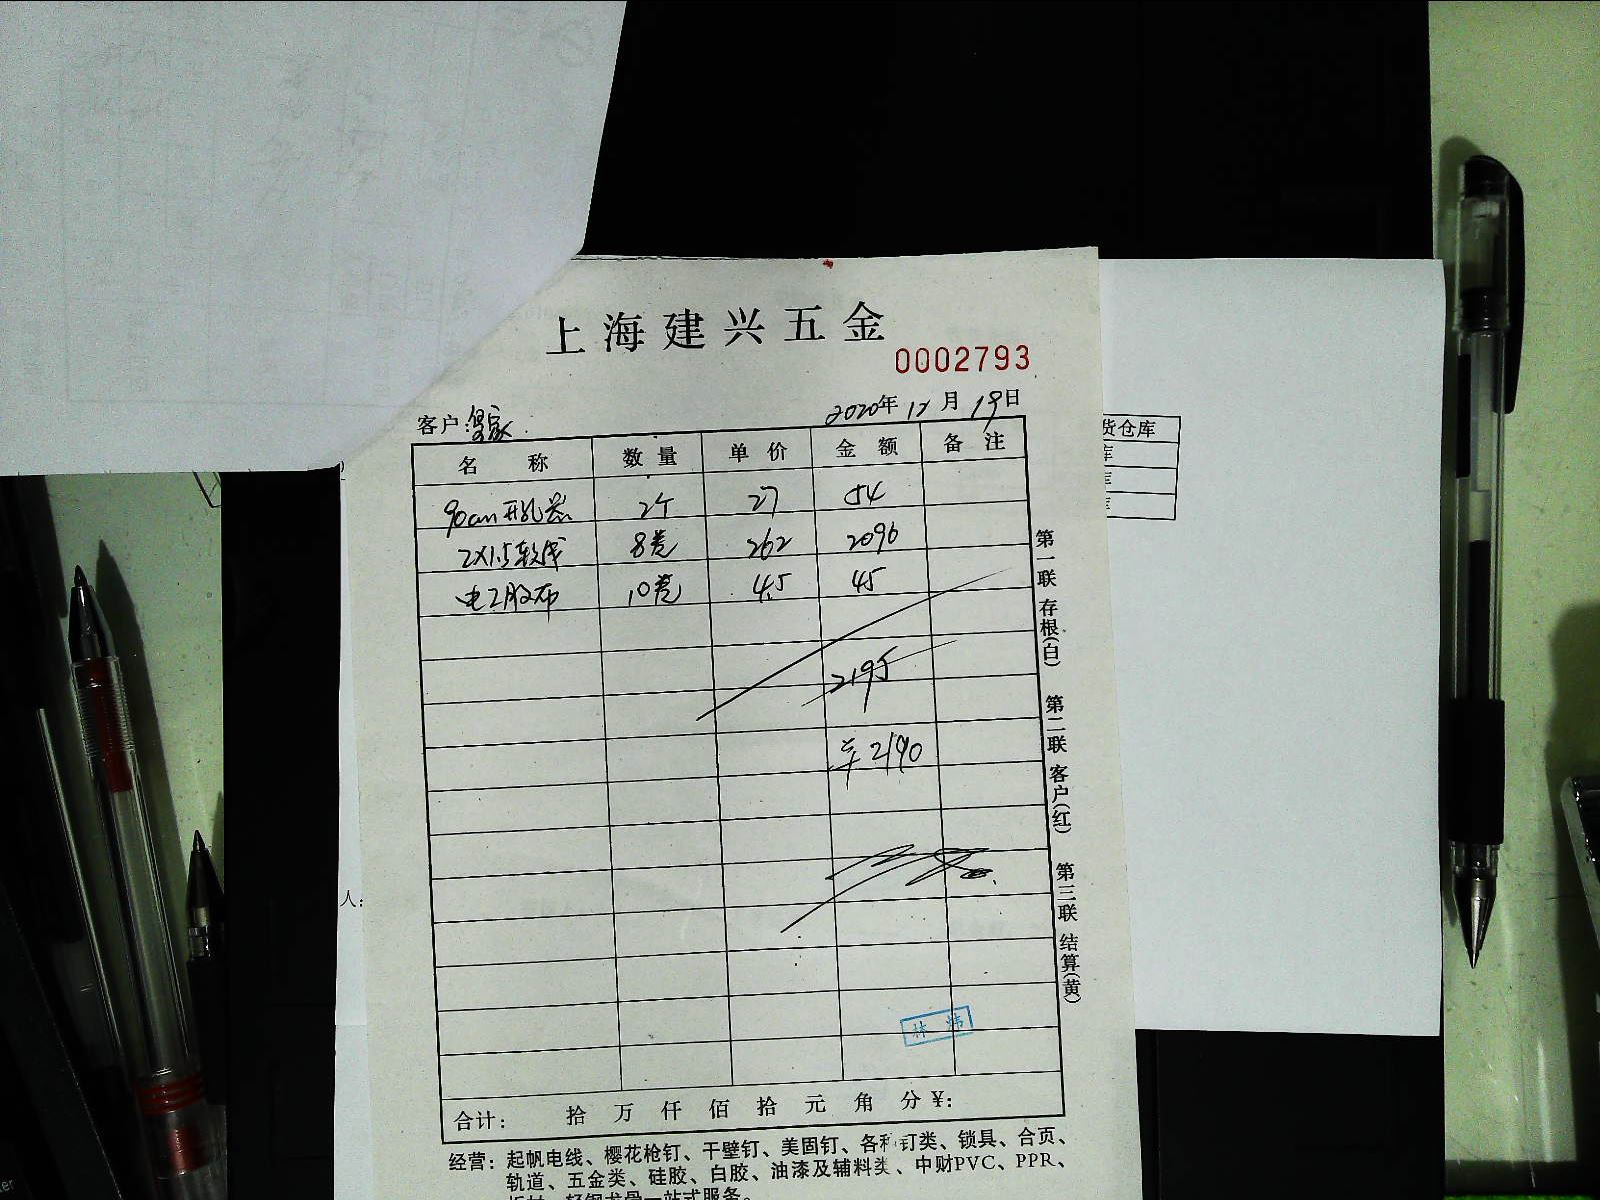 上海建兴五金
0002793
客户:
2020年12月19日
名称 数量 单价 金额 备注
90cm开孔器 2个 27 54
2X1.5软线 8卷 262 2096
电工胶布 10卷 4.5 45
2195
¥2190
林炜
合计: 拾 万 仟 佰 拾 元 角 分 ¥:
经营: 起帆电线、樱花枪钉、干壁钉、美固钉、各种钉类、锁具、合页、
轨道、五金类、硅胶、白胶、油漆及辅料类、中财PVC、PPR、
第一联 存根(白) 第二联 客户(红) 第三联 结算(黄)
货仓库
库
人: